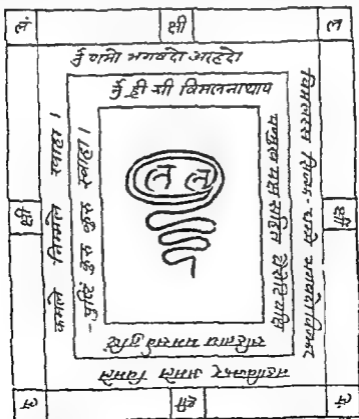 लं क्षी ल
ॐ णमो भगवदो आरहदो
विमलस्स सिज्झ-धम्मे भगवदोविज्झर
महाविज्झर अमले विमले
कमले निम्मले स्वाहा।
ॐ ह्री श्री विमलनाथाय
षण्मुख यक्ष सहित वैरोटि यक्षि
सहिताय ममसर्वपुष्टिं
-तुष्टिं कुरु कुरु स्वाहा।
ल ल
क्षी क्षी
ल क्षी ल